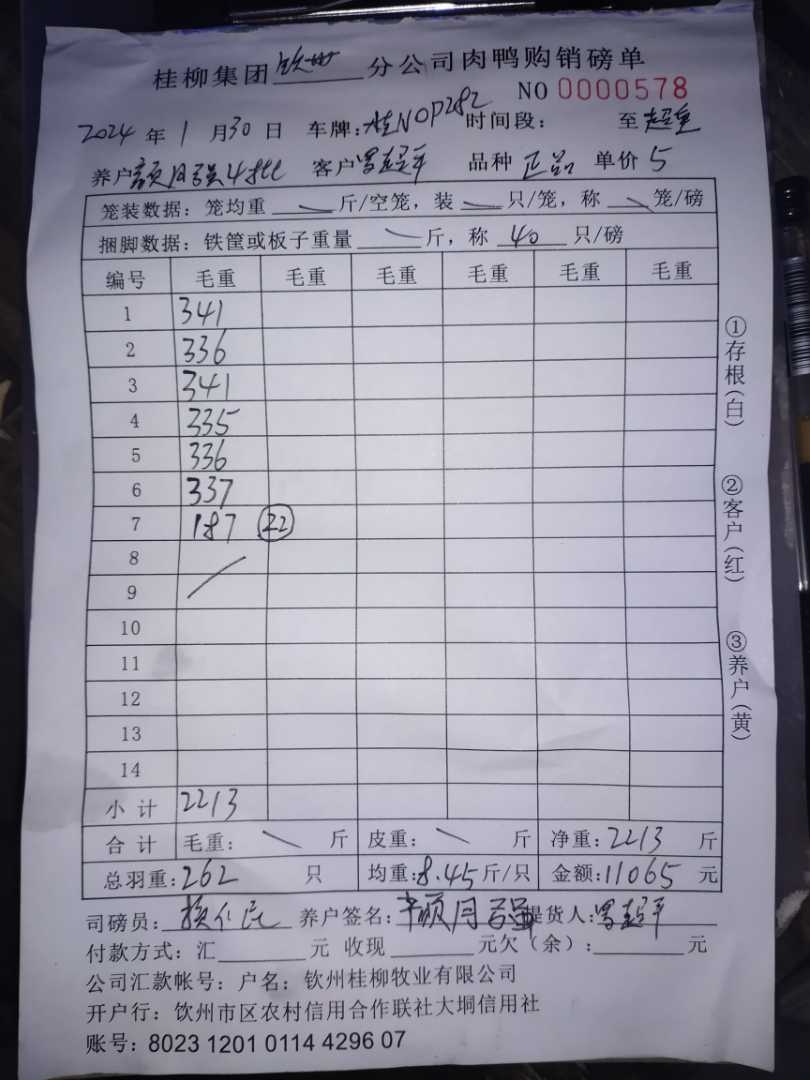 桂柳集团钦州分公司肉鸭购销磅单
NO 0000578
2024年1月30日 车牌:桂N0P282 时间段: 至
养户 月强4批 客户罗超平 品种正品 单价5
笼装数据:笼均重 斤/空笼,装 只/笼,称 笼/磅
捆脚数据:铁筐或板子重量 斤,称 40 只/磅
编号 毛重 毛重 毛重 毛重 毛重 毛重
1 341
2 336
3 341
4 335
5 336
6 337
7 187 22
8
9
10
11
12
13
14
小计 2213
合计 毛重: 斤 皮重: 斤 净重:2213斤
总羽重:262 只 均重:8.45斤/只 金额:11065元
司磅员: 养户签名: 月强 提货人:罗超平
付款方式:汇 元 收现 元欠(余): 元
公司汇款帐号:户名:钦州桂柳牧业有限公司
开户行:钦州市区农村信用合作联社大垌信用社
账号:8023 1201 0114 4296 07
①存根(白)
②客户(红)
③养户(黄)